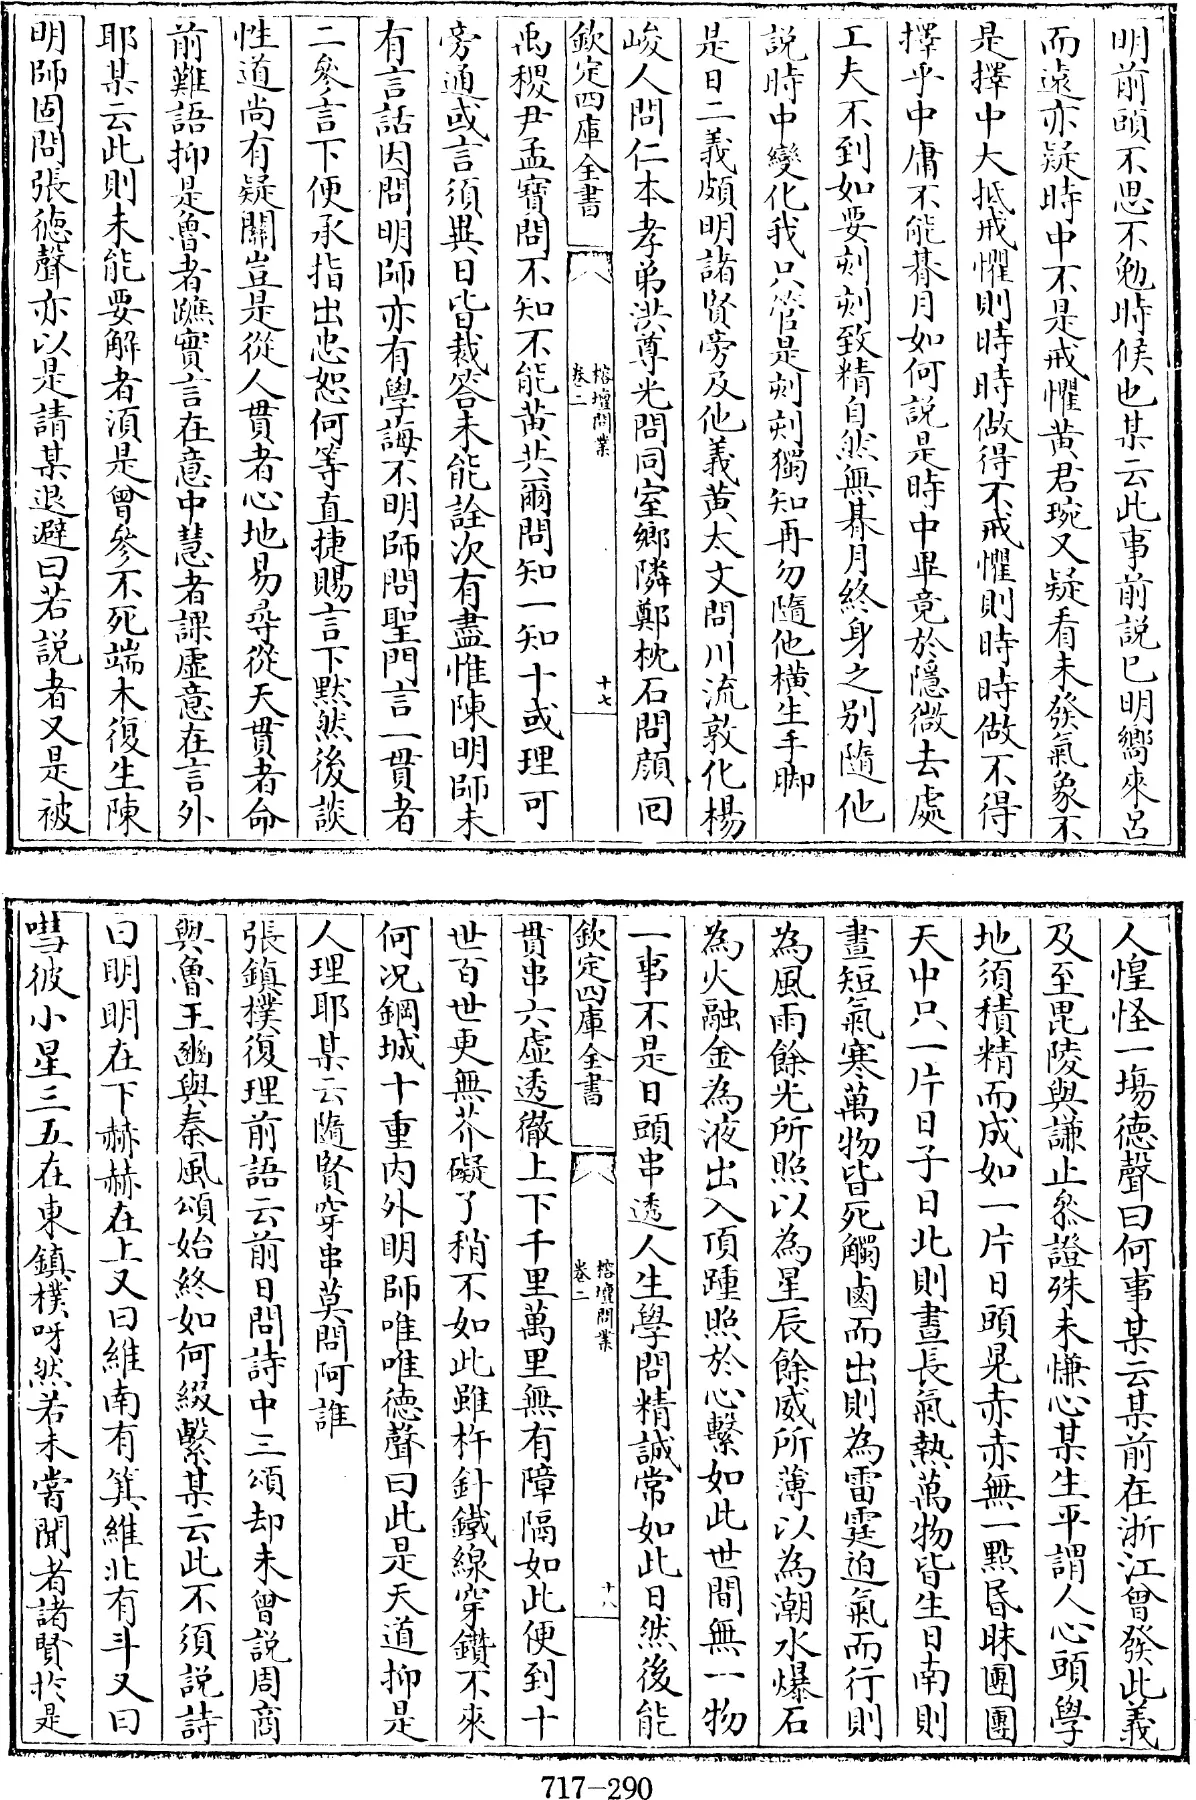 明前頭不思不勉時候也某云此事前説已明嚮來呂
而遠亦疑時中不是戒懼黄君琬又疑看未發氣象不
是擇中大抵戒懼則時時做得不戒懼則時時做不得
擇乎中庸不能朞月如何説是時中畢竟於隱微去處
工夫不到如要刻刻致精自然無朞月終身之别隨他
説時中變化我只管是刻刻獨知再勿隨他橫生手脚
是日二義頗明諸賢旁及他義黄太文問川流敦化楊
峻人問仁本孝弟洪尊光問同室鄉隣鄭枕石問顔回
欽定四庫全書
榕壇問業
卷二
十七
禹稷尹孟寶問不知不能黄共爾問知一知十或理可
旁通或言須異日皆裁答未能詮次有盡惟陳明師未
有言話因問明師亦有學誨不明師問聖門言一貫者
二參言下便承指出忠恕何等直捷賜言下黙然後談
性道尚有疑關豈是從人貫者心地易尋從天貫者命
前難語抑是魯者蹠實言在意中慧者課虛意在言外
耶某云此則未能要解者須是曾參不死端木復生陳
明師固問張德聲亦以是請某退避曰若説者又是被
人惶怪一塲德聲曰何事某云某前在浙江曾發此義
及至毘陵與謙止叅證殊未慊心某生平謂人心頭學
地須積精而成如一片日頭晃赤赤無一點昏昧團團
天中只一片日子日北則晝長氣熱萬物皆生日南則
晝短氣寒萬物皆死觸鹵而出則為雷霆迫氣而行則
為風雨餘光所照以為星辰餘威所薄以為潮水爆石
為火融金為液出入頂踵照於心繫如此世間無一物
一事不是日頭串透人生學問精誠常如此日然後能
欽定四庫全書
榕壇問業
卷二
十八
貫串六虛透徹上下千里萬里無有障隔如此便到十
世百世更無芥礙了稍不如此雖杵針鐵線穿鑽不來
何况鋼城十重内外明師唯唯德聲曰此是天道抑是
人理耶某云隨賢穿串莫問阿誰
張鎮樸復理前語云前日問詩中三頌却未曾説周商
與魯王豳與秦風頌始終如何綴繫某云此不須説詩
曰明明在下赫赫在上又曰維南有箕維北有斗又曰
嘒彼小星三五在東鎮樸呀然若未嘗聞者諸賢於是
717-290